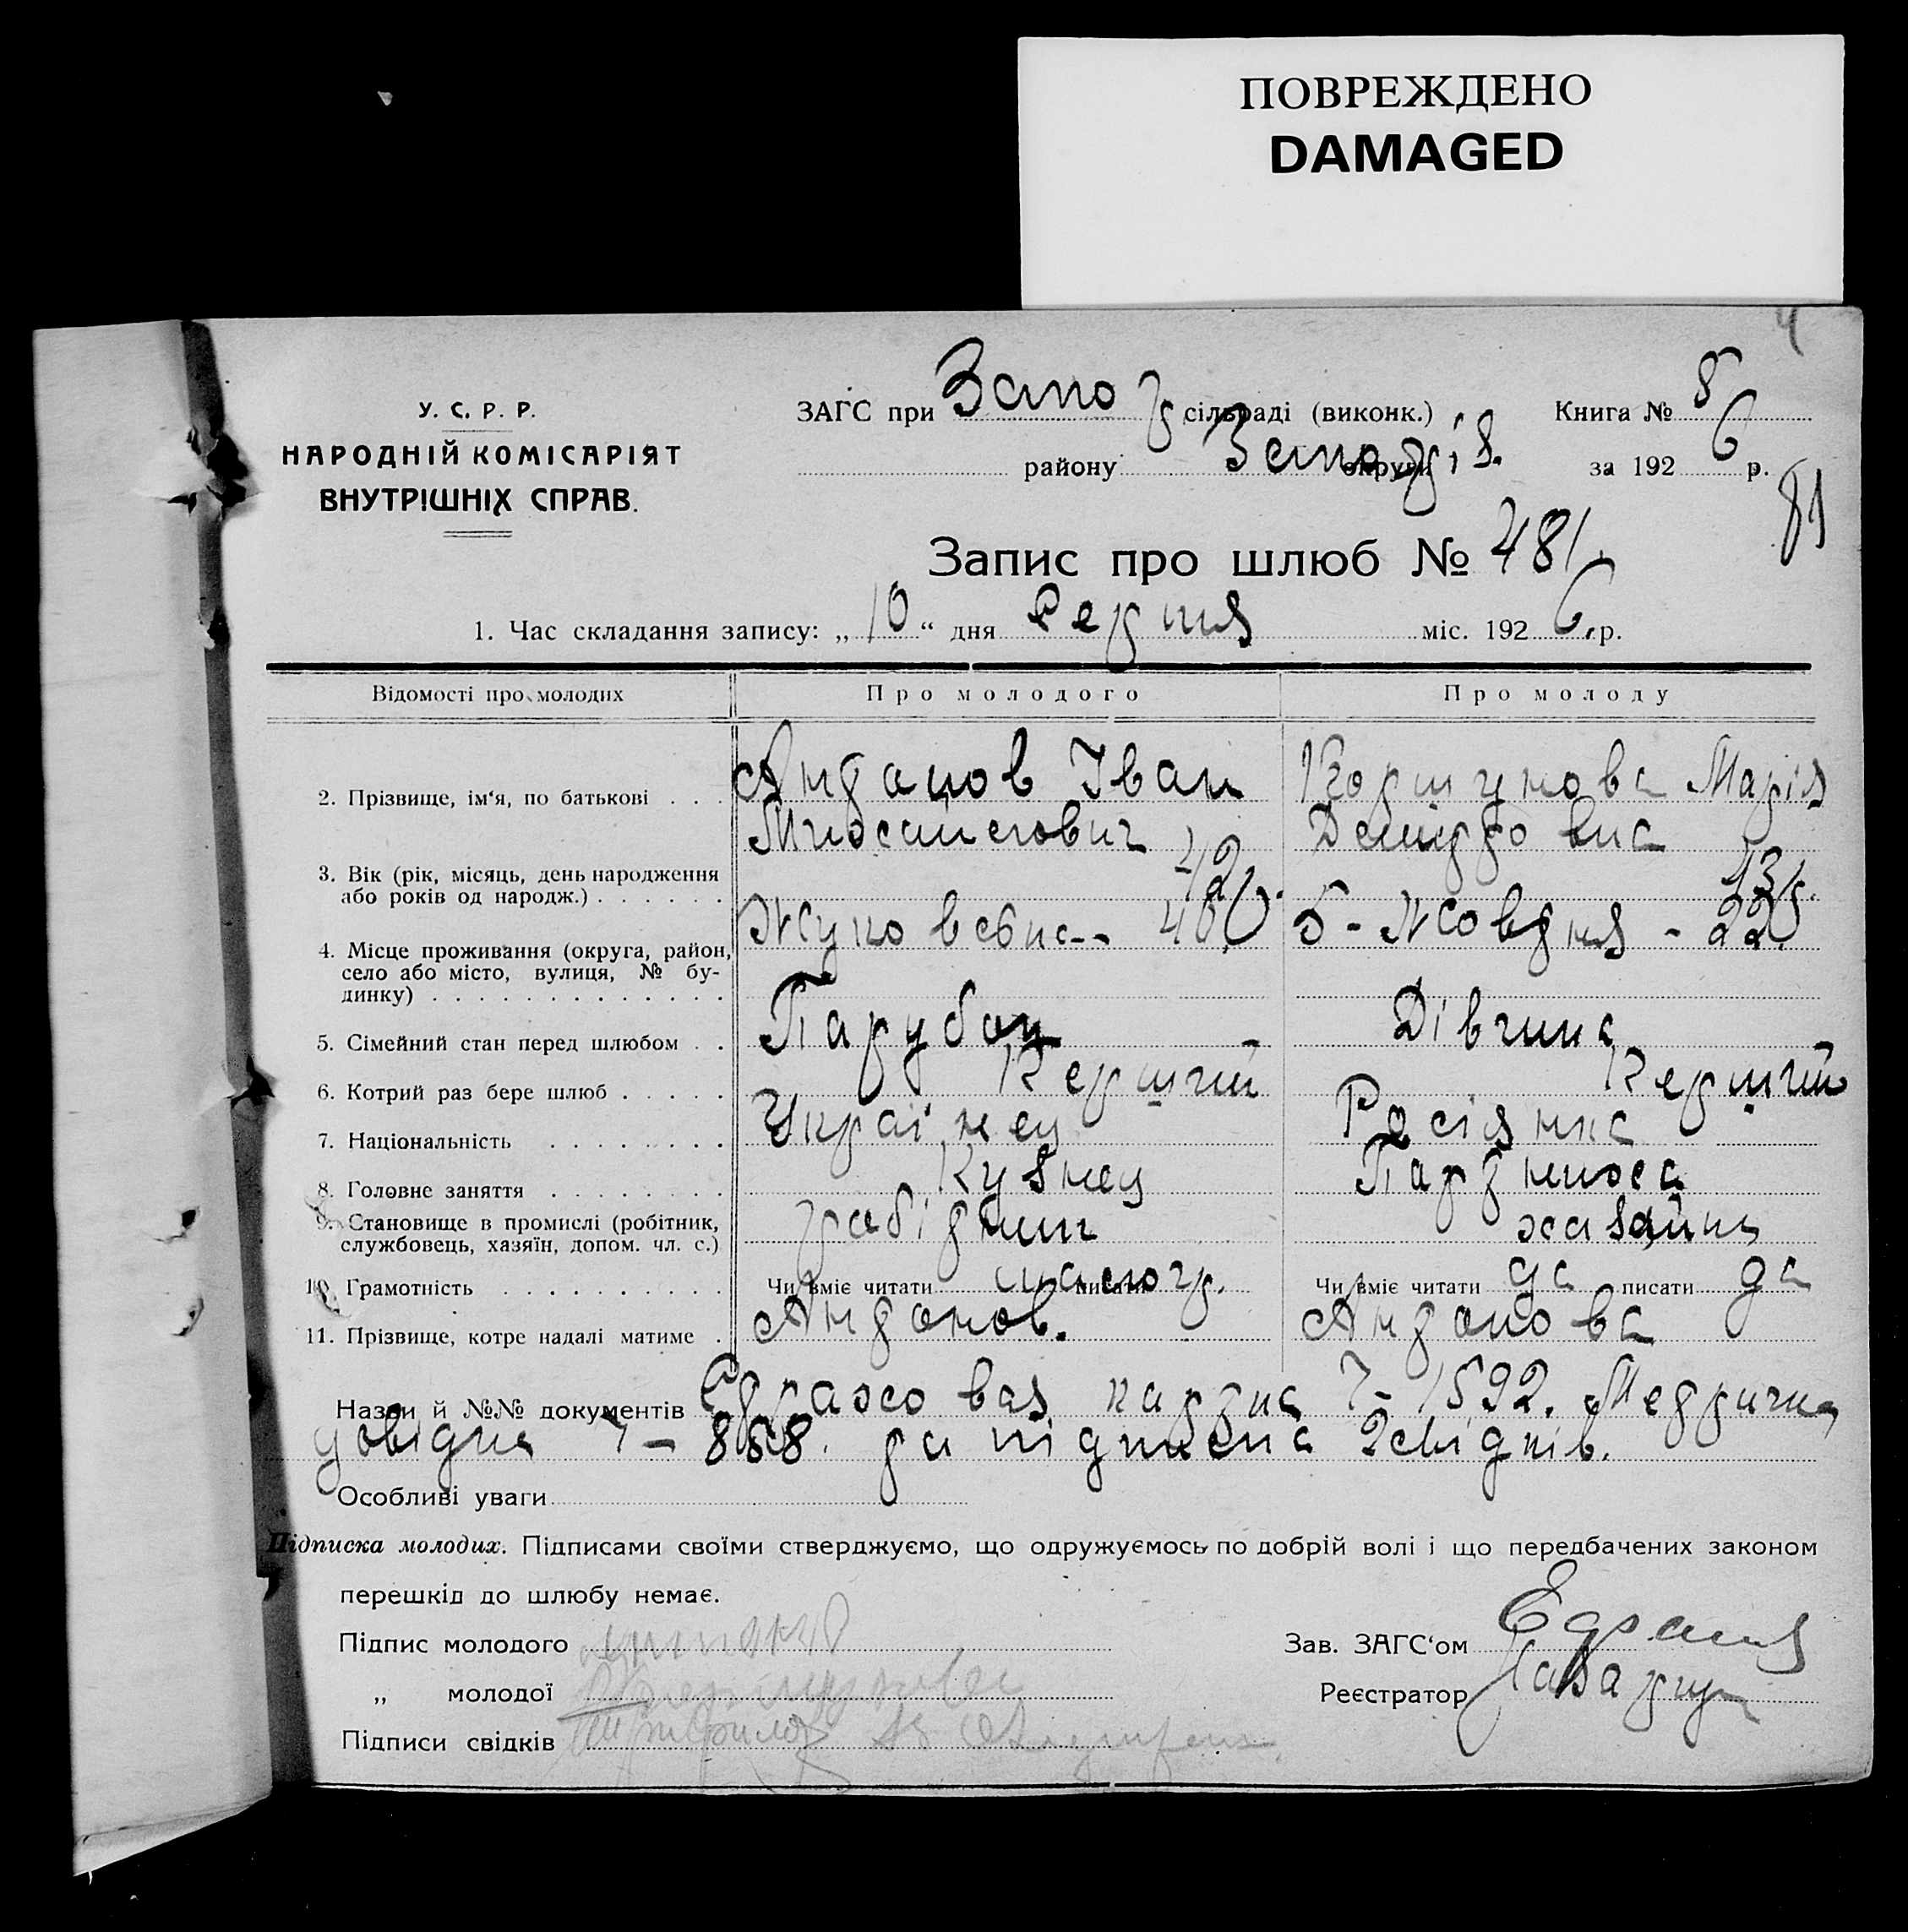 ПОВРЕЖДЕНО
DAMAGED
У. С. Р. Р.
НАРОДНІЙ КОМІСАРІЯТ
ВНУТРІШНІХ СПРАВ.
ЗАГС при Запо сільраді (виконк.) Книга № 8
району округи за 1926 р.
81
Запис про шлюб № 481.
1. Час складання запису: „10“ дня Серпня міс. 1926 р.
Відомості про молодих Про молодого Про молоду
2. Прізвище, ім‘я, по батькові . . . Антонов Іван Коршунова Марія
Михайлович
3. Вік (рік, місяць, день народження
або років од народж.) . . . . . .
4. Місце проживання (округа, район,
село або місто, вулиця, № бу-
динку) . . . . . . . . . . . . .
5. Сімейний стан перед шлюбом . . Парубок Дівчина
6. Котрий раз бере шлюб . . . . . Перший Перший
7. Національність . . . . . . . . Українец Росіянка
8. Головне заняття . . . . . . . . Кузнец
9. Становище в промислі (робітник,
службовець, хазяїн, допом. чл. с.) робітник хазяйка
10. Грамотність . . . . . . . . . . Чи вміє читати писати Чи вміє читати да писати да
11. Прізвище, котре надалі матиме . Антонов. Антонова
Назви й №№ документів Страховая картка 7-1592. Медрична
довідка 7-888. та підписка 2 свідків.
Особливі уваги
Підписка молодих. Підписами своїми стверджуємо, що одружуємось по добрій волі і що передбачених законом
перешкід до шлюбу немає.
Підпис молодого Зав. ЗАГС‘ом
„ молодої Реєстратор
Підписи свідків